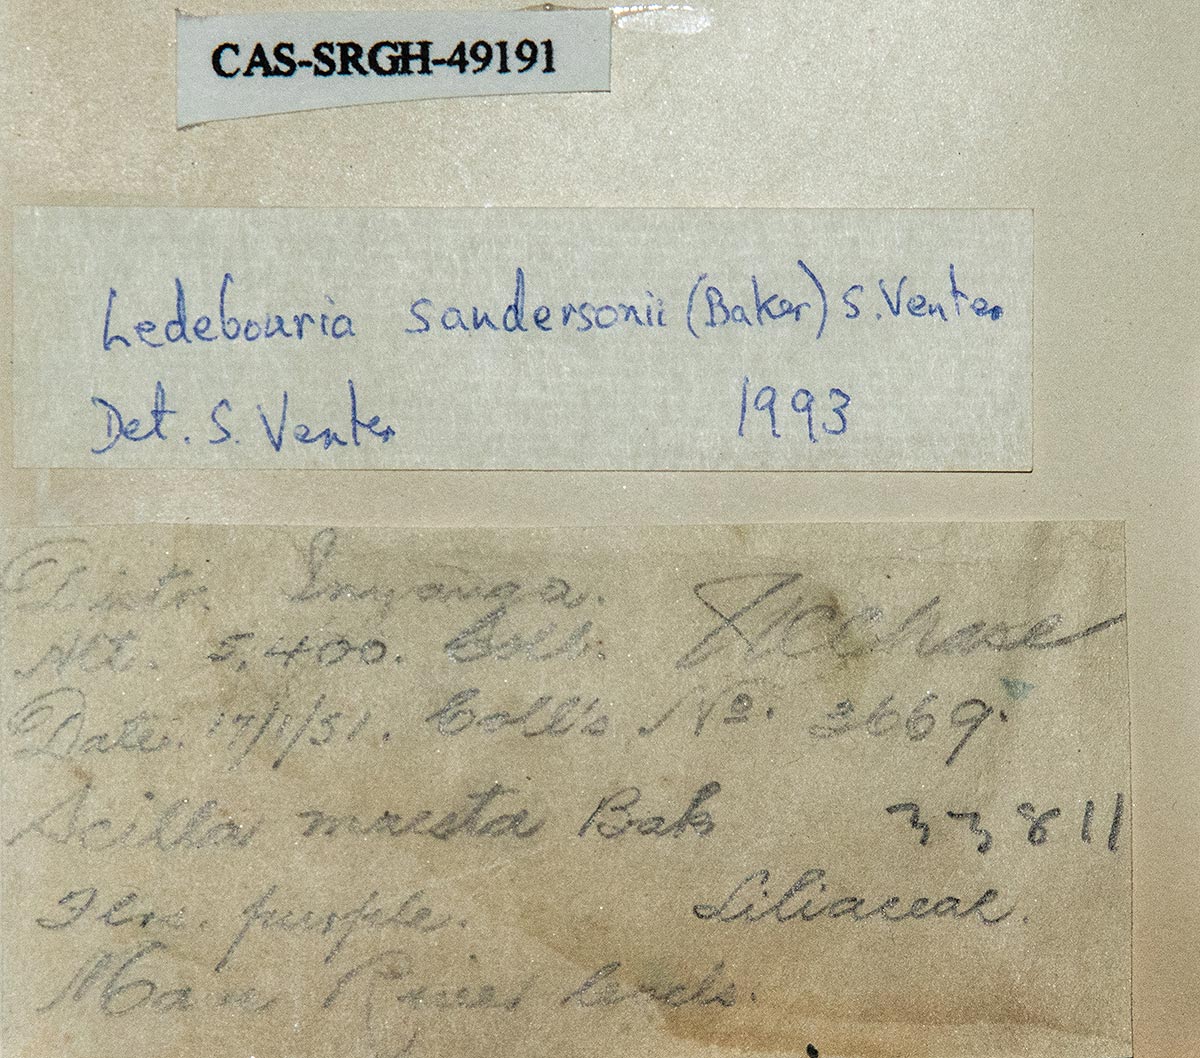 CAS-SRGH-49191
Ledebouria sandersonii (Baker) S. Venter
Det. S. Venter 1993
Distr. Inyanga.
Alt. 5,400. Coll. Chase
Date. 17/1/51. Coll's No. 3669.
Scilla maesta Bak 33811
Flrs. purple. Liliaceae.
River